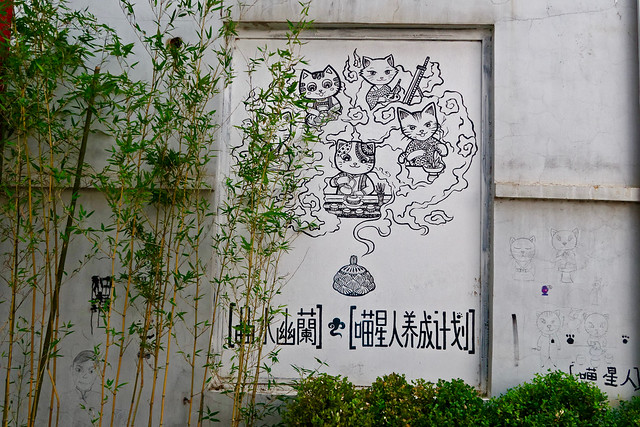 幽蘭] [喵星人养成计划]
[喵星人